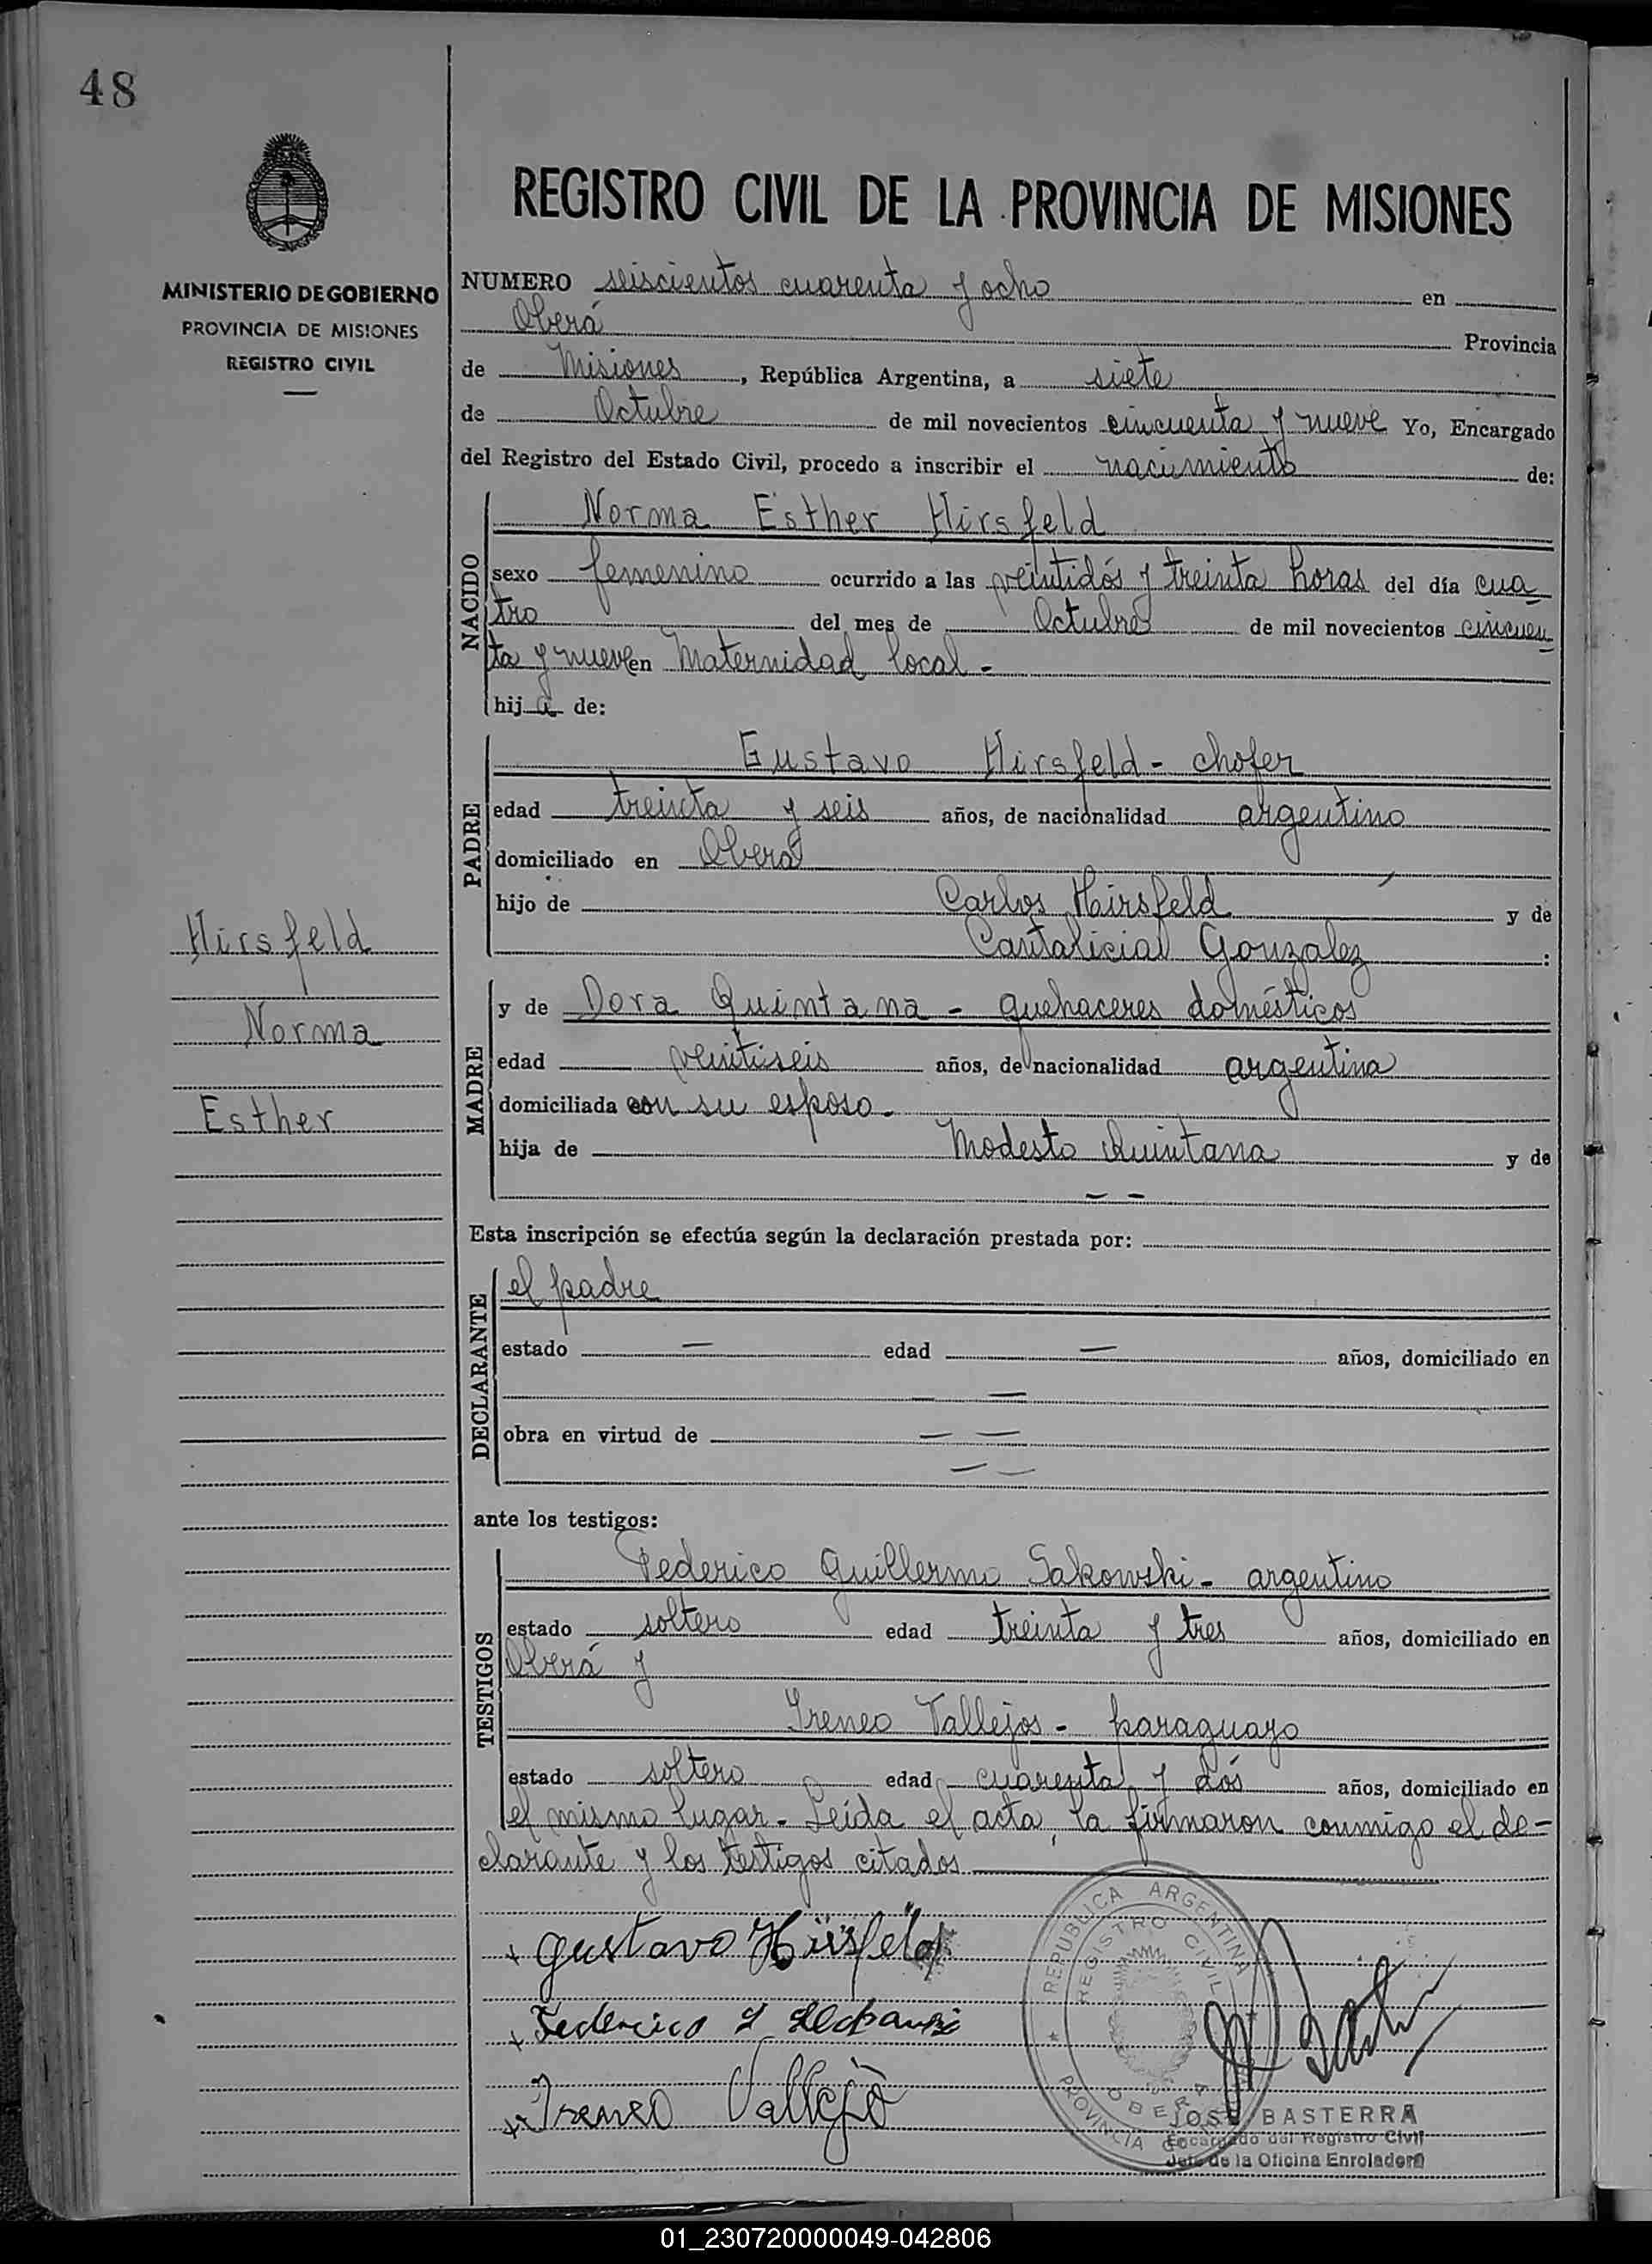 48
MINISTERIO DE GOBIERNO
PROVINCIA DE MISIONES
REGISTRO CIVIL
Hirsfeld
Norma
Esther
REGISTRO CIVIL DE LA PROVINCIA DE MISIONES
NUMERO seiscientos cuarenta y ocho en
Oberá Provincia
de Misiones, República Argentina, a siete
de Octubre de mil novecientos cincuenta y nueve Yo, Encargado
del Registro del Estado Civil, procedo a inscribir el nacimiento de:
NACIDO
Norma Esther Hirsfeld
sexo femenino ocurrido a las veintidós y treinta horas del día cua
tro del mes de Octubre de mil novecientos cincuen
ta y nueve en Maternidad local -
hija de:
PADRE
Gustavo Hirsfeld - chofer
edad treinta y seis años, de nacionalidad argentino
domiciliado en Oberá
hijo de Carlos Hirsfeld y de
Cantalicia Gonzalez :
MADRE
y de Dora Quintana - quehaceres domésticos
edad veintiseis años, de nacionalidad argentina
domiciliada con su esposo -
hija de Modesto Quintana y de
- -
Esta inscripción se efectúa según la declaración prestada por:
DECLARANTE
el padre
estado — edad — años, domiciliado en
— —
obra en virtud de — —
— —
ante los testigos:
TESTIGOS
Federico Guillermo Sakowski - argentino
estado soltero edad treinta y tres años, domiciliado en
Oberá y
Ireneo Vallejos - paraguayo
estado soltero edad cuarenta y dós años, domiciliado en
el mismo lugar - Leída el acta, la firmaron conmigo el de-
clarante y los testigos citados
+ Gustavo Hirsfeld
+ Federico
+ Ireneo Vallejo
REPUBLICA ARGENTINA
REGISTRO CIVIL
OBERA
PROVINCIA
JOSE BASTERRA
Encargado del Registro Civil
Jefe de la Oficina Enroladora
01_230720000049-042806